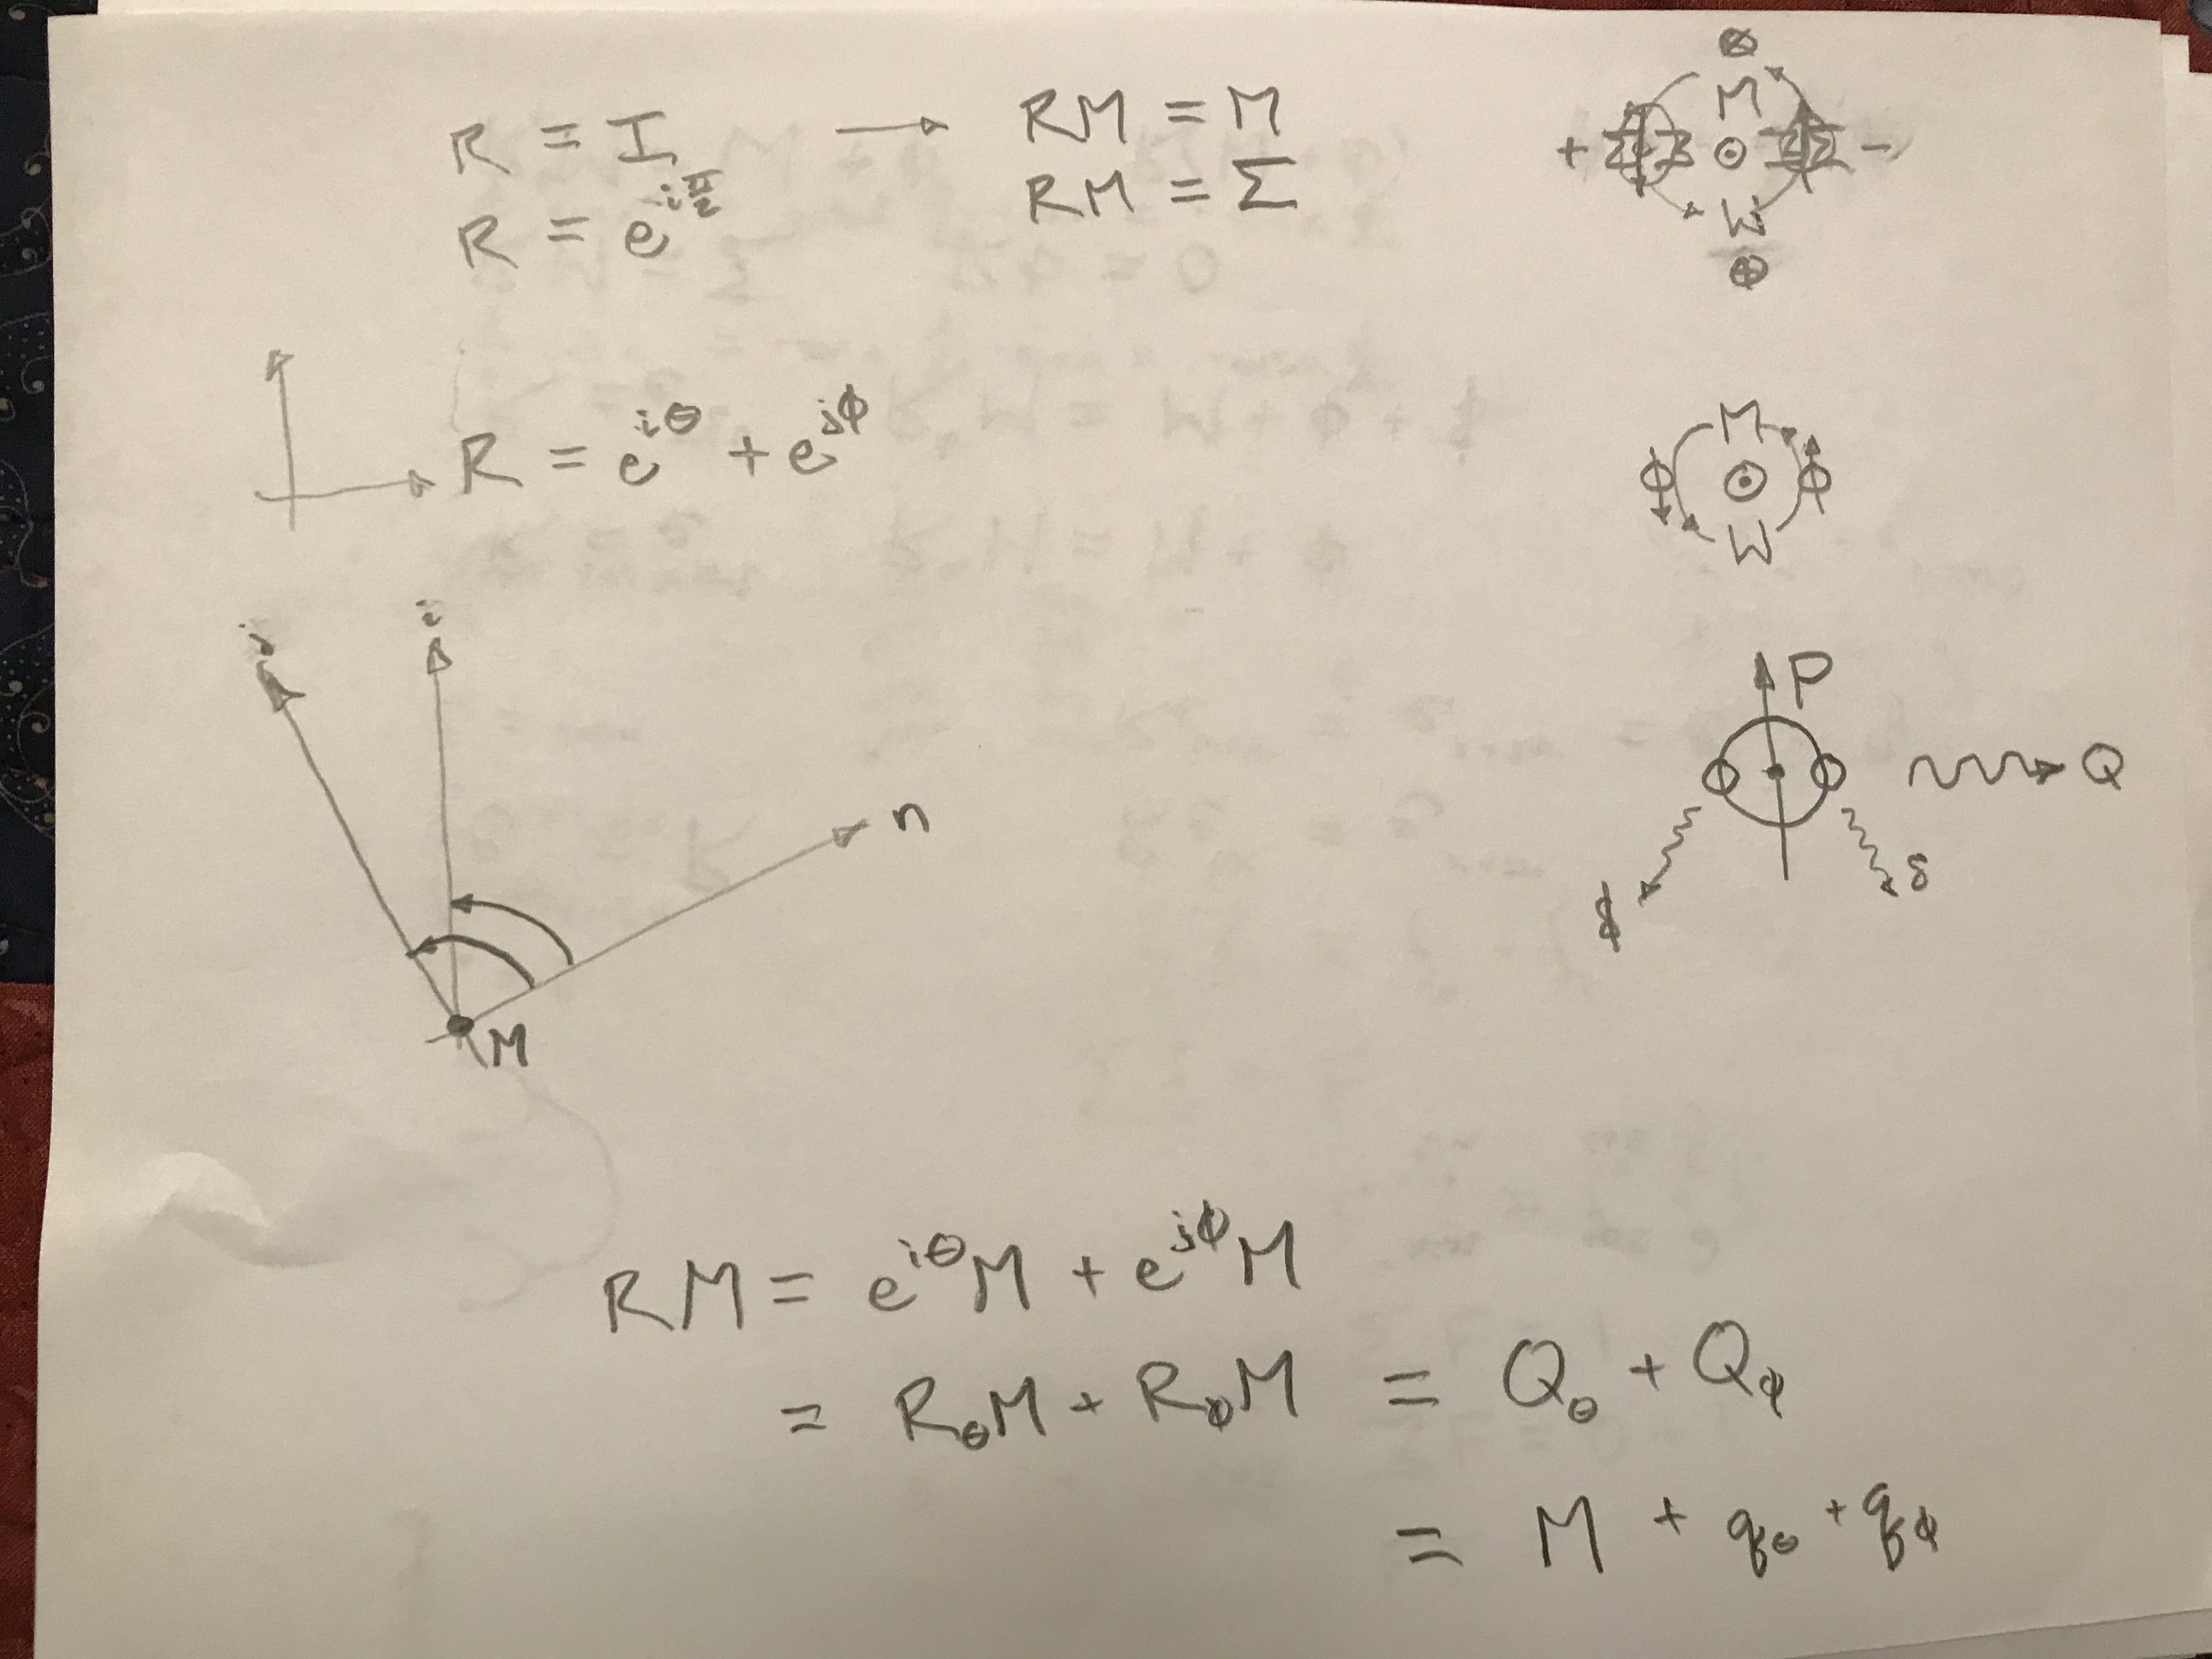 R = I → RM = M
R = e^{iπ/2} RM = Σ
⊗
M
+ Σ Σ ⊙ Σ -
W
⊕
R = e^{iθ} + e^{jϕ}
M
ϕ ⊙ ϕ
W
j i
n
M
P
Q
δ
RM = e^{iθ}M + e^{jϕ}M
= R_θM + R_ϕM = Q_θ + Q_ϕ
= M + q_θ + q_ϕ